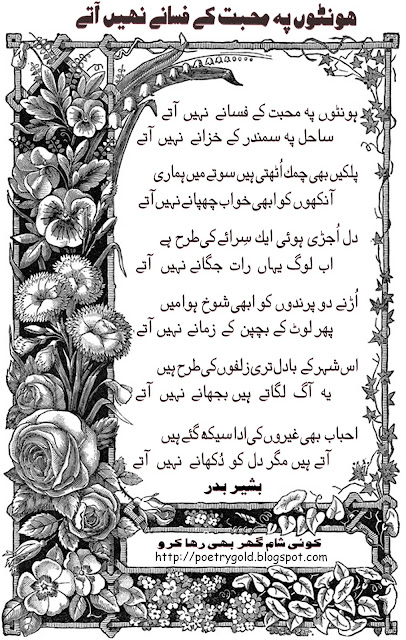 ہونٹوں پہ محبت کے فسانے نہیں آتے
ہونٹوں پہ محبت کے فسانے نہیں آتے
ساحل پہ سمندر کے خزانے نہیں آتے
پلکیں بھی چمک اُٹھتی ہیں سوتے میں ہماری
آنکھوں کو ابھی خواب چھپانے نہیں آتے
دل اُجڑی ہوئی ایک سِرائے کی طرح ہے
اب لوگ یہاں رات جگانے نہیں آتے
اُڑنے دو پرندوں کو ابھی شوخ ہوا میں
پھر لوٹ کے بچپن کے زمانے نہیں آتے
اس شہر کے بادل تری زلفوں کی طرح ہیں
یہ آگ لگاتے ہیں بجھانے نہیں آتے
احباب بھی غیروں کی ادا سیکھ گئے ہیں
آتے ہیں مگر دل کو دُکھانے نہیں آتے
بشیر بدر
کوئی شام گھر بھی رہا کرو
http://poetrygold.blogspot.com